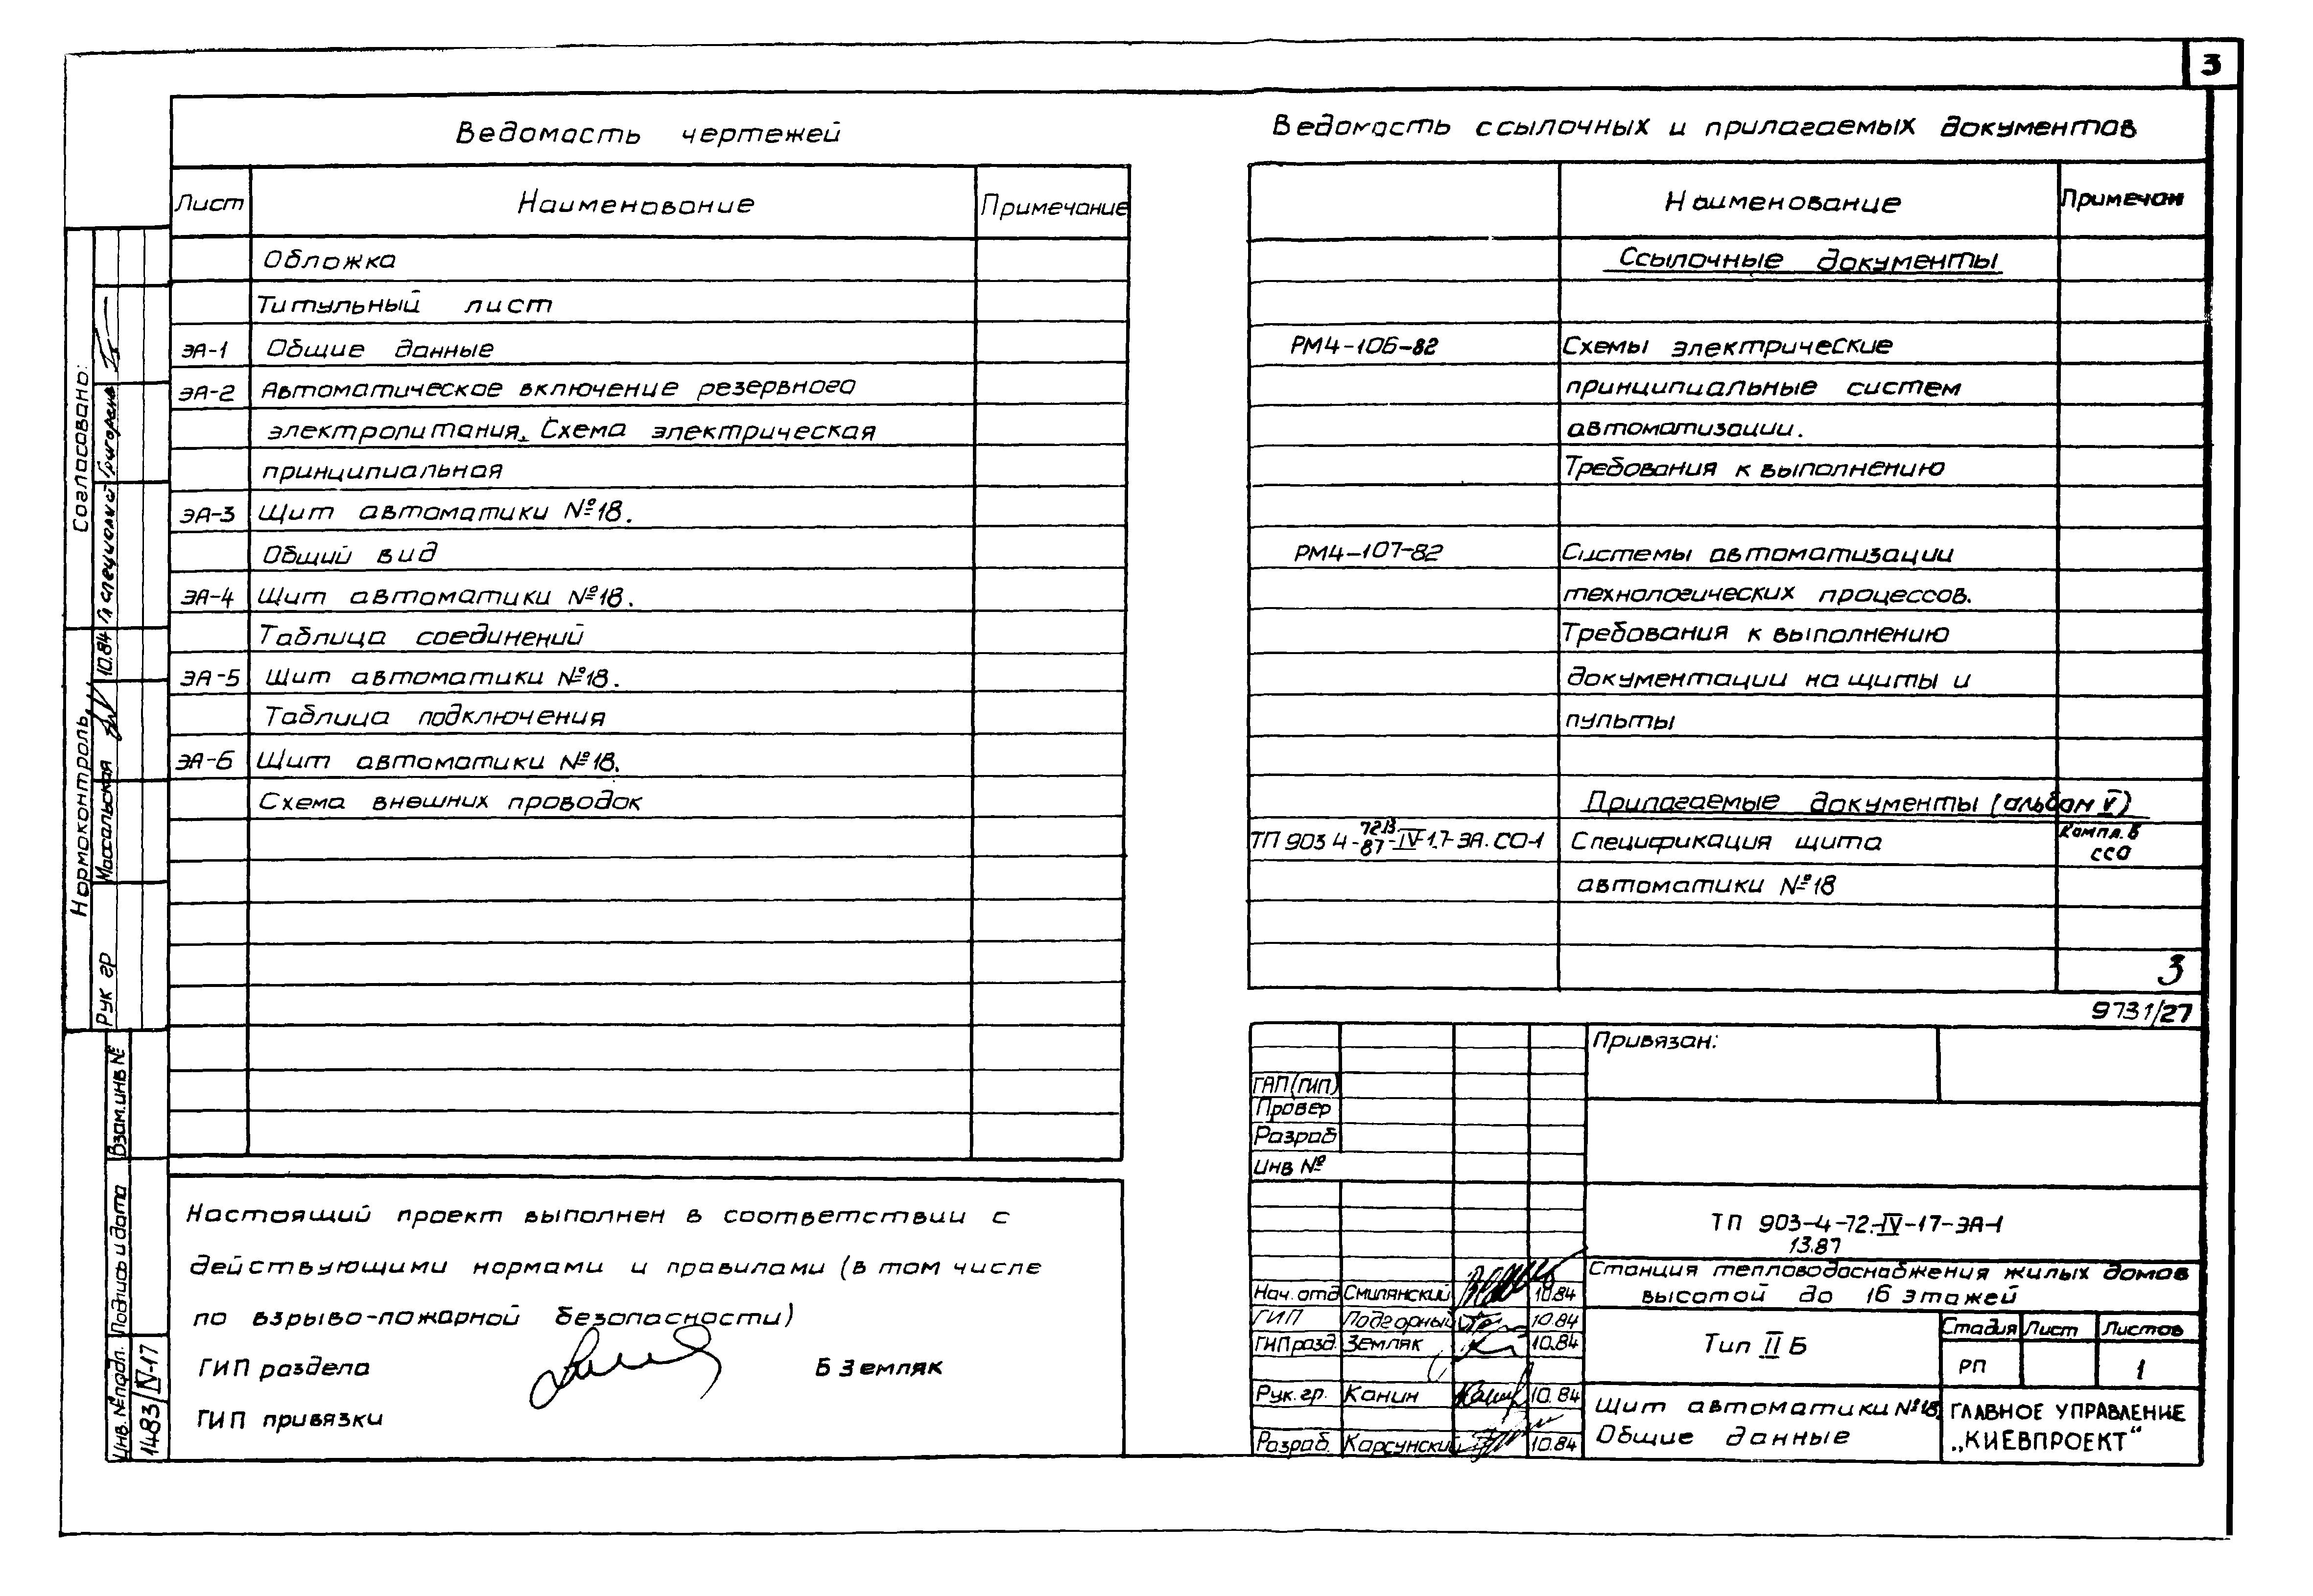 3
Ведомость чертежей
Лист Наименование Примечание
Обложка
Титульный лист
ЭА-1 Общие данные
ЭА-2 Автоматическое включение резервного
электропитания. Схема электрическая
принципиальная
ЭА-3 Щит автоматики №18.
Общий вид
ЭА-4 Щит автоматики №18.
Таблица соединений
ЭА-5 Щит автоматики №18.
Таблица подключения
ЭА-6 Щит автоматики №18.
Схема внешних проводок
Ведомость ссылочных и прилагаемых документов
Наименование Примечан
Ссылочные документы
РМ4-106-82 Схемы электрические
принципиальные систем
автоматизации.
Требования к выполнению
РМ4-107-82 Системы автоматизации
технологических процессов.
Требования к выполнению
документации на щиты и
пульты
Прилагаемые документы (альбом V)
ТП 903 4-72.13.87-IV-17-ЭА.СО-1 Спецификация щита
автоматики №18
Компл. в
ССО
3
9731/27
Настоящий проект выполнен в соответствии с
действующими нормами и правилами (в том числе
по взрыво-пожарной безопасности)
ГИП раздела Б Земляк
ГИП привязки
Привязан:
ГАП (ГИП)
Провер
Разраб
Инв №
ТП 903-4-72.IV-17-ЭА-1
13.87
Станция тепловодоснабжения жилых домов
высотой до 16 этажей
Нач. отд Смилянский 10.84
ГИП Подгорный 10.84
ГИП разд. Земляк 10.84
Рук. гр. Канин 10.84
Разраб. Карсунский 10.84
Тип II Б
Стадия Лист Листов
РП 1
Щит автоматики №18.
Общие данные
ГЛАВНОЕ УПРАВЛЕНИЕ
„КИЕВПРОЕКТ“
Согласовано:
Гл специалист Григоренко
Нормоконтроль
Рук гр Массальская 10.84
Взам.инв №
Подпись и дата
Инв. №подл.
1483/IV-17